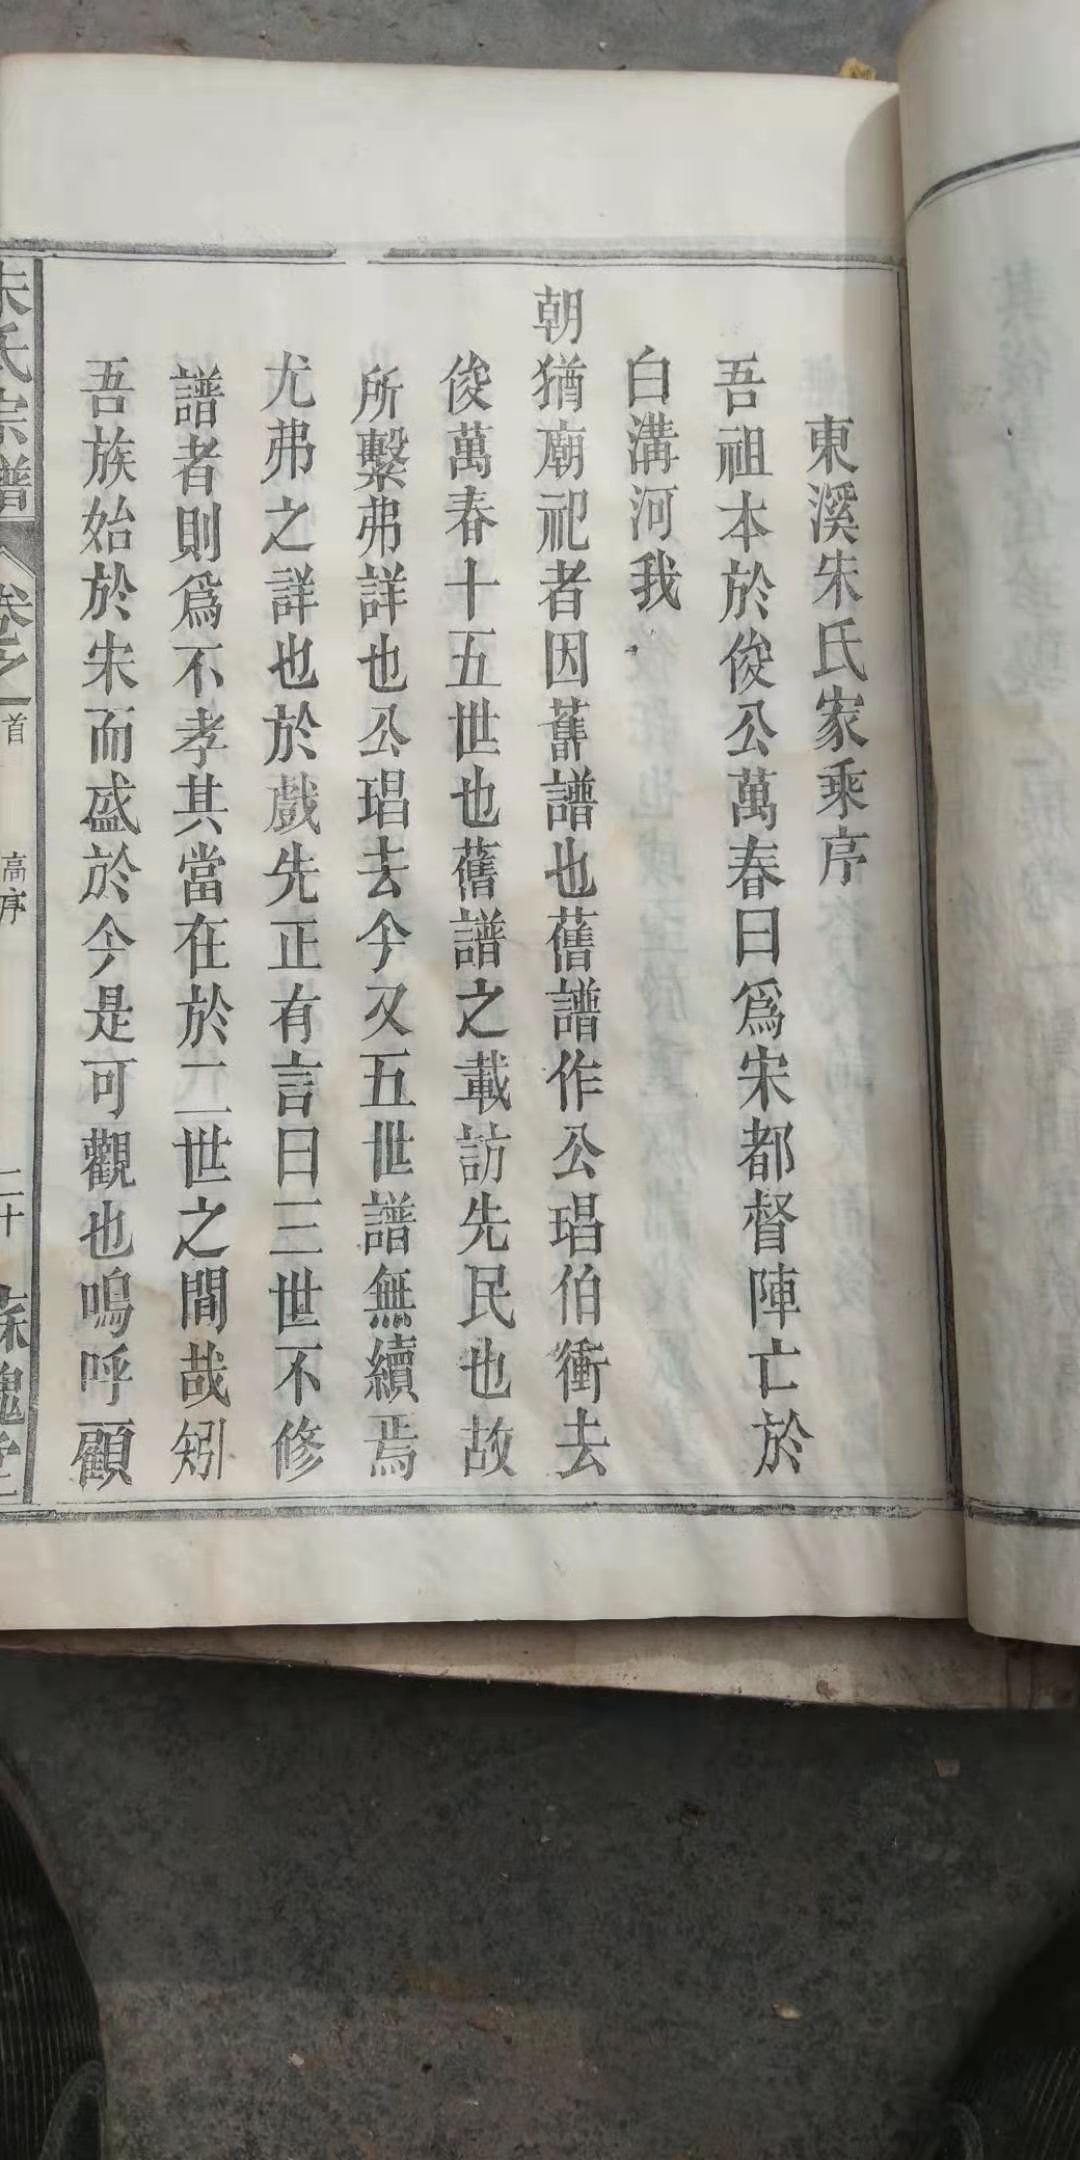 東溪朱氏家乘序
吾祖本於俊公萬春曰爲宋都督陣亡於
白溝河我
朝猶廟祀者因舊譜也舊譜作公琩伯衝去
俊萬春十五世也舊譜之載訪先民也故
所繫弗詳也公琩去今又五世譜無續焉
尤弗之詳也於戲先正有言曰三世不修
譜者則爲不孝其當在於二世之間哉矧
吾族始於宋而盛於今是可觀也嗚呼顧
朱氏宗譜
卷之一
首
高序
二十